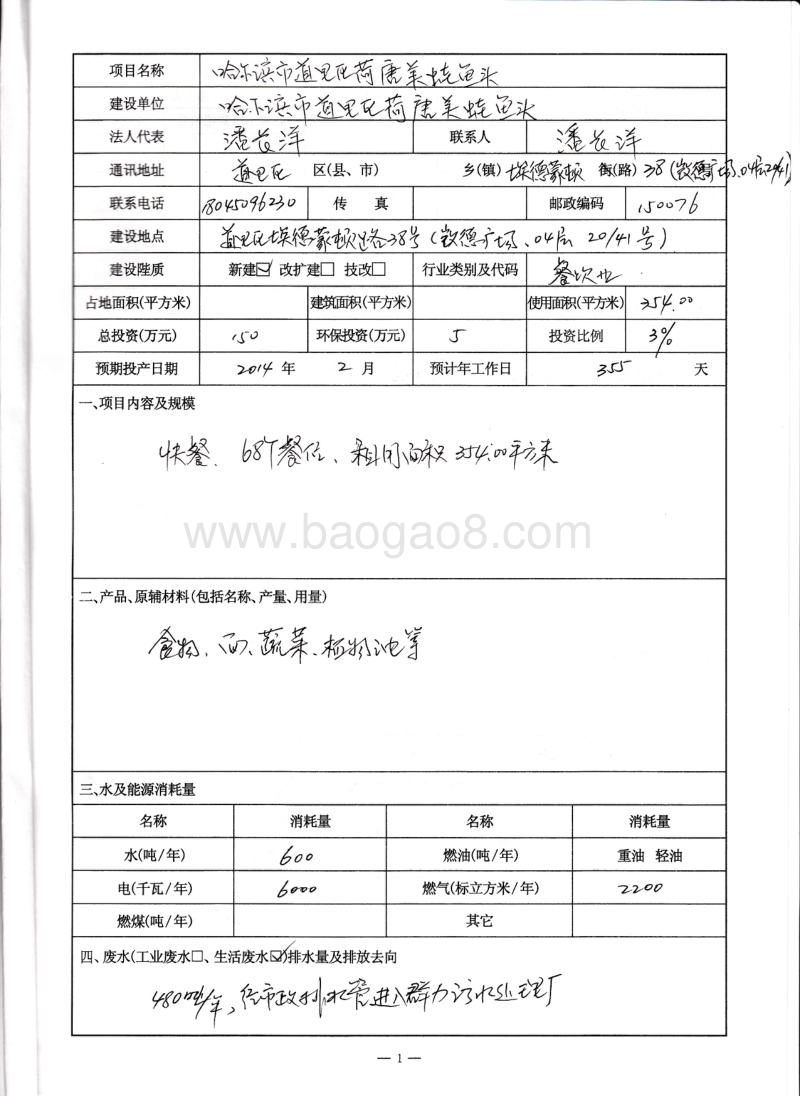 项目名称 哈尔滨市道里区荷唐美烧鱼头
建设单位 哈尔滨市道里区荷唐美烧鱼头
法人代表 潘长洋 联系人 潘长洋
通讯地址 道里区 区(县、市) 乡(镇) 埃德蒙顿 街(路) 38 (敛德广场、04层2041)
联系电话 18045096230 传 真 邮政编码 150076
建设地点 道里区埃德蒙顿路38号(敛德广场、04层 20/41号)
建设陛质 新建☑ 改扩建□ 技改□ 行业类别及代码 餐饮业
占地面积(平方米) 建筑面积(平方米) 使用面积(平方米) 354.00
总投资(万元) 150 环保投资(万元) 5 投资比例 3%
预期投产日期 2014 年 2 月 预计年工作日 355 天
一、项目内容及规模
快餐、68个餐位、租用面积354.00平方米
www.baogao8.com
二、产品、原辅材料(包括名称、产量、用量)
食物、面、蔬菜、植物油等
三、水及能源消耗量
名称 消耗量 名称 消耗量
水(吨/年) 600 燃油(吨/年) 重油 轻油
电(千瓦/年) 6000 燃气(标立方米/年) 2200
燃煤(吨/年) 其它
四、废水(工业废水□、生活废水☑)排水量及排放去向
480吨/年,经市政排水管进入群力污水处理厂
— 1 —